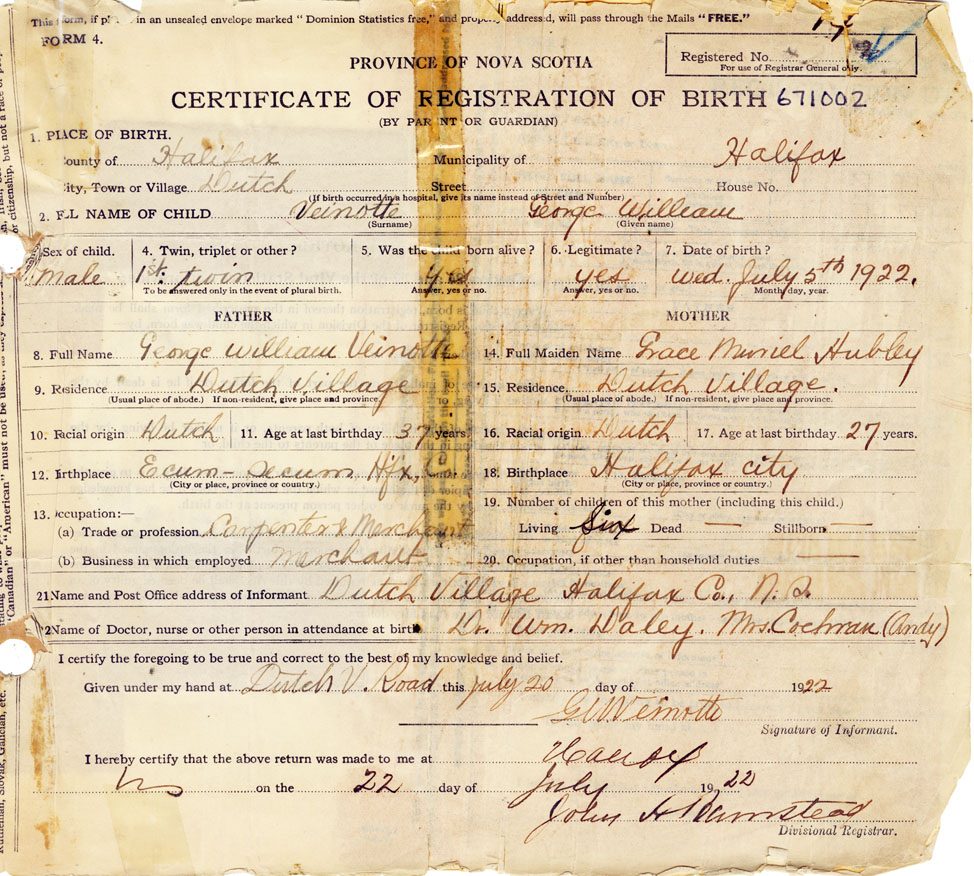 This form, if pl in an unsealed envelope marked "Dominion Statistics free," and properly addressed, will pass through the Mails "FREE."
FORM 4.
Registered No.
For use of Registrar General only.
PROVINCE OF NOVA SCOTIA
CERTIFICATE OF REGISTRATION OF BIRTH 671002
(BY PARENT OR GUARDIAN)
1. PLACE OF BIRTH.
County of Halifax Municipality of Halifax
City, Town or Village Dutch Street House No.
(If birth occurred in a hospital, give its name instead of Street and Number)
2. FULL NAME OF CHILD Veinotte George William
(Surname) (Given name)
Sex of child. 4. Twin, triplet or other? 5. Was the child born alive? 6. Legitimate? 7. Date of birth?
Male 1st. twin Yes yes Wed. July 5th 1922.
To be answered only in the event of plural birth. Answer, yes or no. Answer, yes or no. Month, day, year.
FATHER MOTHER
8. Full Name George William Veinotte 14. Full Maiden Name Grace Muriel Hubley
9. Residence Dutch Village 15. Residence Dutch Village.
(Usual place of abode.) If non-resident, give place and province (Usual place of abode.) If non-resident, give place and province.
10. Racial origin Dutch 11. Age at last birthday 37 years. 16. Racial origin Dutch 17. Age at last birthday 27 years.
12. Birthplace Ecum-Secum Hfx, 18. Birthplace Halifax city
(City or place, province or country.) (City or place, province or country.)
19. Number of children of this mother (including this child.)
13. Occupation:—
(a) Trade or profession Carpenter & Merchant Living Six Dead — Stillborn —
(b) Business in which employed Merchant 20. Occupation, if other than household duties —
21. Name and Post Office address of Informant Dutch Village Halifax Co., N.S.
2 Name of Doctor, nurse or other person in attendance at birth Dr. Wm. Daley. Mrs. Cochran (Andy)
I certify the foregoing to be true and correct to the best of my knowledge and belief.
Given under my hand at Dutch V. Road this July 20 day of 1922
G W Veinotte
Signature of Informant.
I hereby certify that the above return was made to me at
on the 22 day of July 1922
John H
Divisional Registrar.